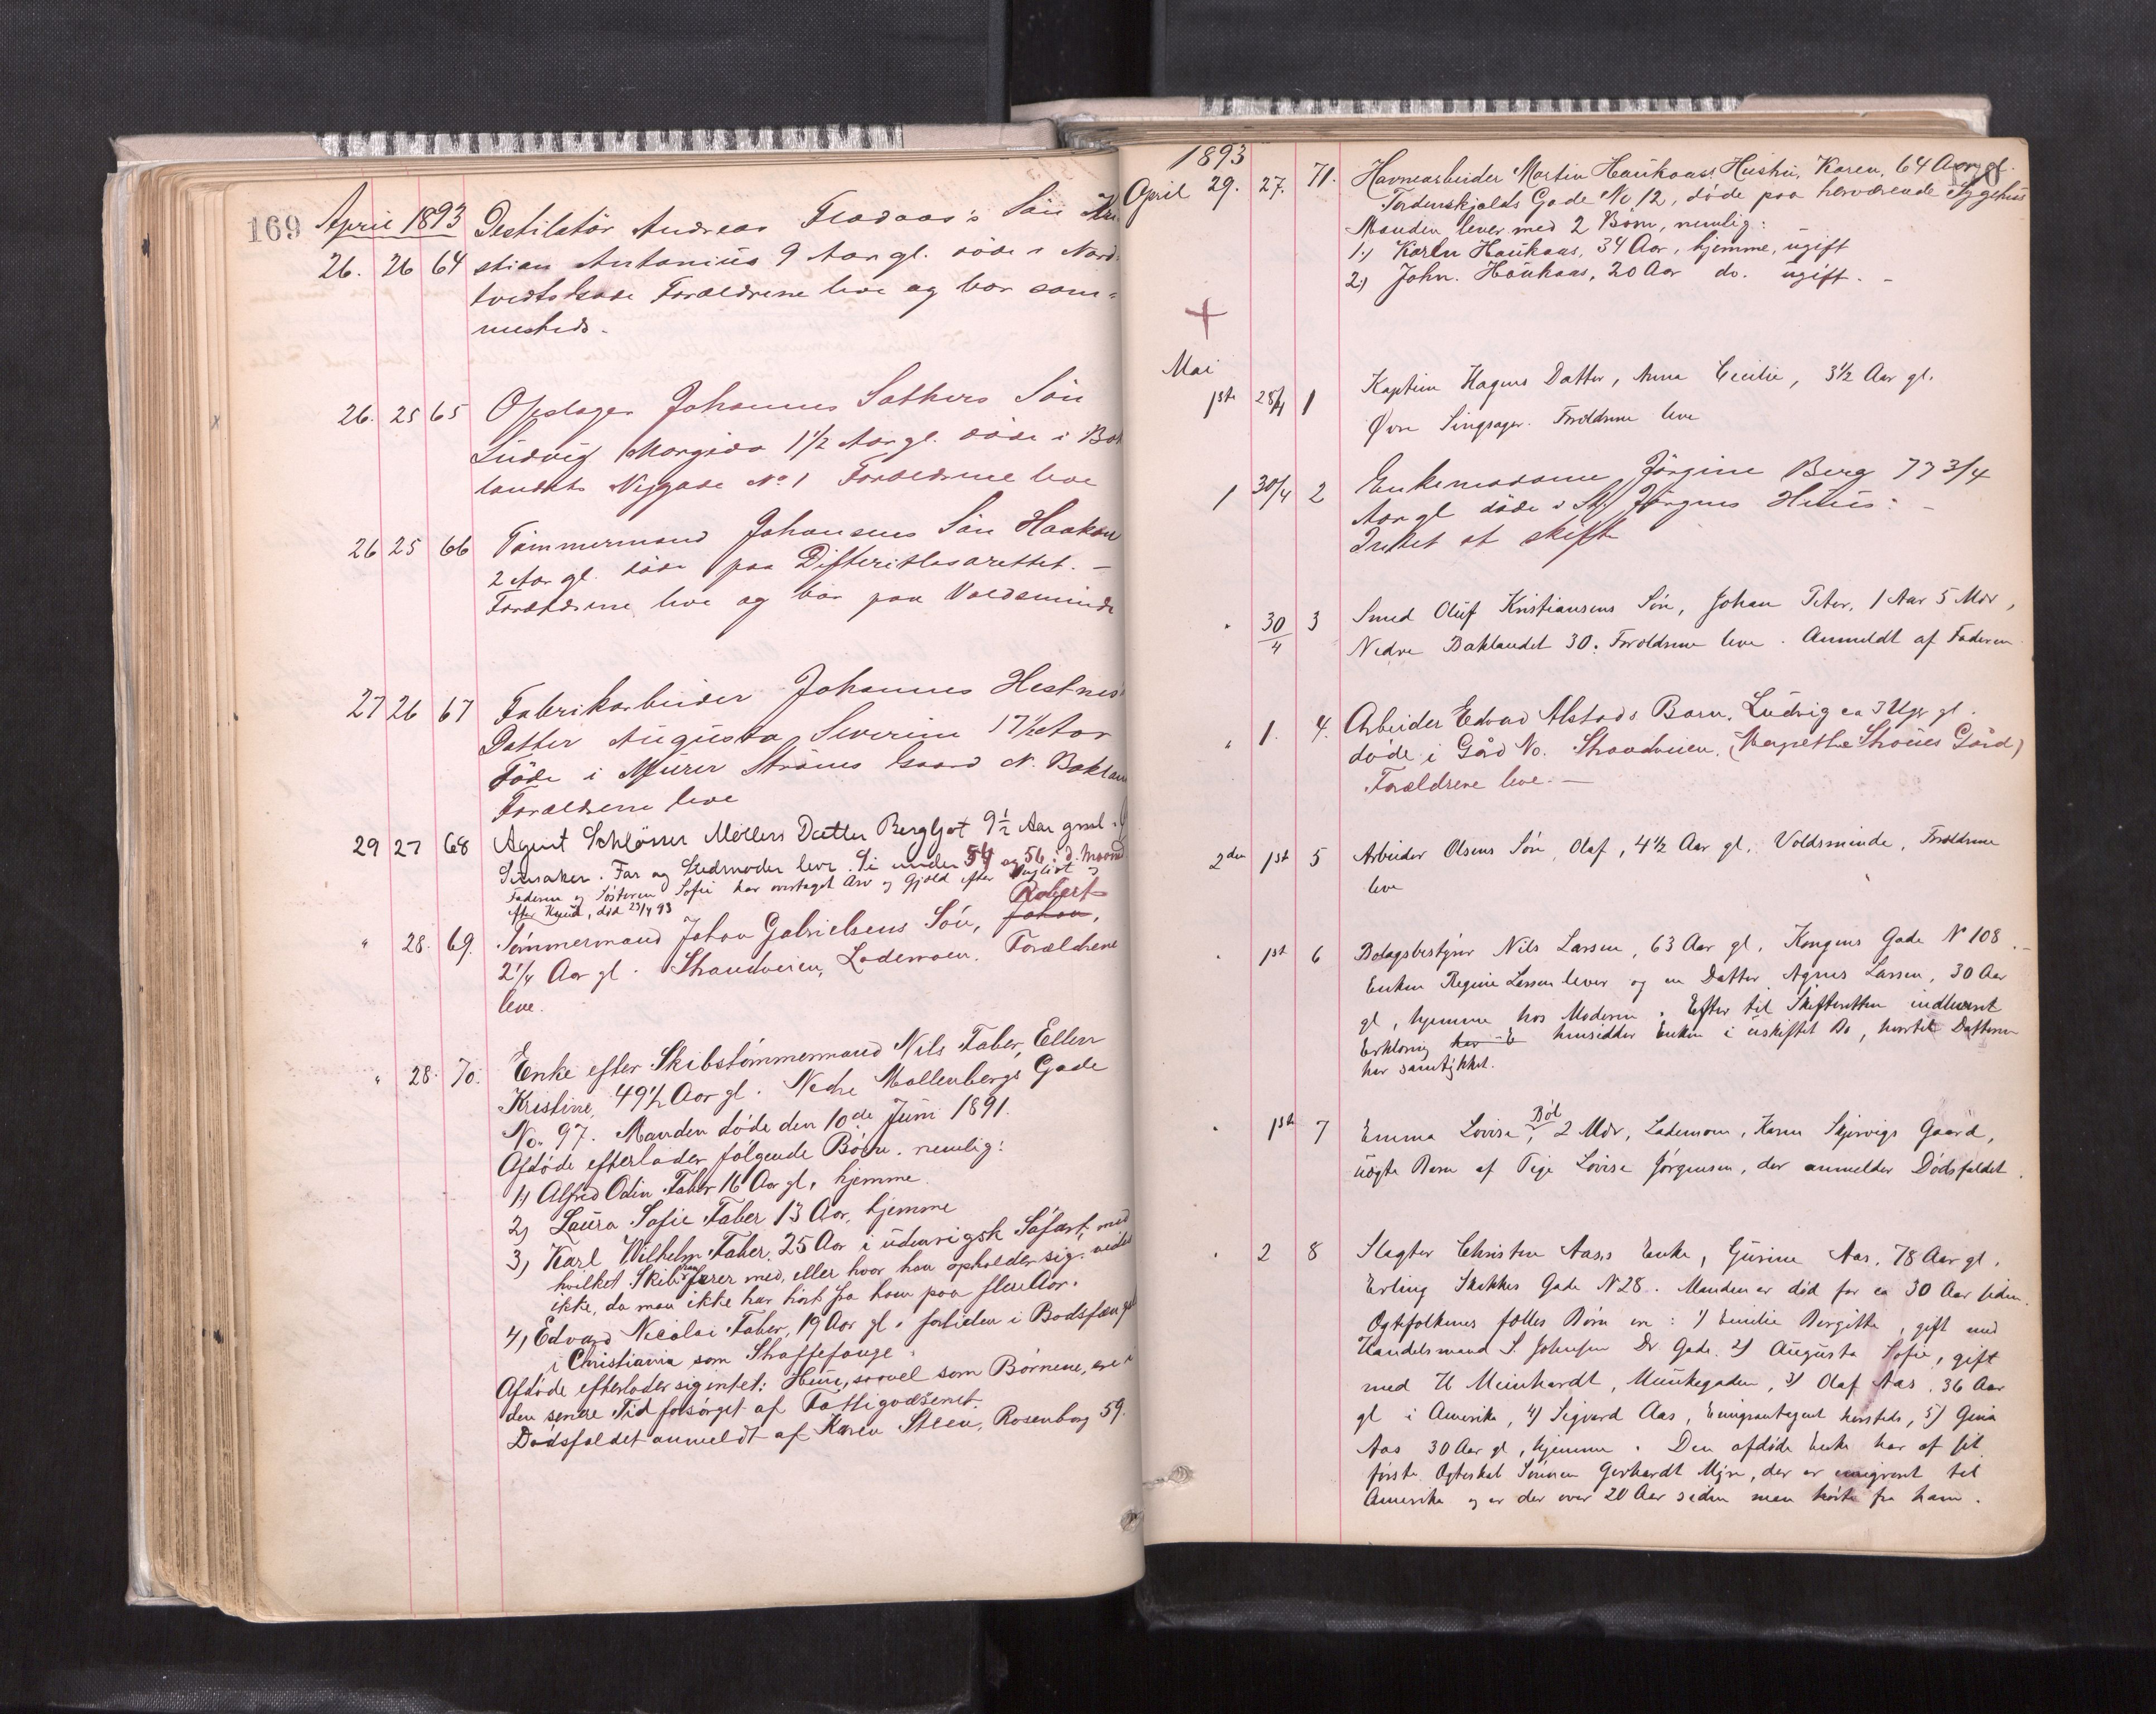 169
April 1893 Destilatör Andreas Fladaas's Sön Kri
26. 26 64 stian Antonius 9 Aar gl. döde i Nord-
tvedts Gade Forældrene leve og bor sam-
mesteds.
26. 25 65 Opdager Johannes Sathers Sön
Ludvig Margido 1 1/2 Aar gl. döde i Bak
landets Vejgade No 1 Forældrene leve
26 25 66 Tömmermand Johansens Sön Haakon
2 Aar gl. döde paa Difteritlasarettet. -
Forældrene leve og bor paa Voldsminde
27 26 67 Fabrikarbeider Johannes Hestnes'
Datter Augusta Severine 17 1/2 Aar
döde i Murer Ströms Gaard N. Baklan
Forældrene leve
29 27 68 Agent Schlösser Möllers Datter Bergljot 9 1/2 Aar gml.
Singsaker. Far og Stedmoder leve. Se under 54 og 56 i d. Maaned
Faderen og Søsteren Sofie har overtaget Arv og Gjæld efter
efter Knud, död 23/4 93
Robert
" 28. 69. Tømmermand Johan Gabrielsens Søn, Johan,
2 1/4 Aar gl. Strandveien, Lademoen. Forældrene
leve.
" 28. 70. Enke efter Skibstömmermand Nils Faber, Ellen
Kristine, 49 1/2 Aar gl. Nedre Møllenbergs Gade
No. 97. Manden døde den 10de Juni 1891.
Afdøde efterlader følgende Børn, nemlig:
1) Alfred Odin Faber 16 Aar gl, hjemme.
2) Laura Sofie Faber 13 Aar, hjemme
3) Karl Wilhelm Faber, 25 Aar i udenrigsk Søfart, med
hvilket Skib han farer med, eller hvor han opholder sig, vides
ikke, da man ikke har hört fra ham paa flere Aar.
4) Edvard Nicolai Faber, 19 Aar gl. fortiden i Bodsfængsl
i Christiania som Straffefange.
Afdøde efterlader sig intet; Hun, saavel som Børnene, ere i
den senere Tid forsørget af Fattigvæsenet.
Dødsfaldet anmeldt af Karen Steen, Rosenborg 59.
1893
April 29. 27. 71. Havnearbeider Martin Haukaas's Hustru, Karen, 64 Aar gl.
Tordenskjolds Gade No 12, døde paa herværende Sygehus
Manden lever med 2 Børn, nemlig:
1) Karen Haukaas, 34 Aar, hjemme, ugift
2) John. Haukaas, 20 Aar do. ugift. -
Mai
1ste 28/4 1 Kaptein Hagens Datter, Anna Cecilie, 3 1/2 Aar gl.
Øvre Singsager. Forældrene leve
1 30/4 2 Enkemadame Jörgine Berg 77 3/4
Aar gl döde i St. Jörgens Huus: -
Intet at skifte
" 30/4 3 Smed Oluf Kristiansens Sön, Johan Peter, 1 Aar 5 Mdr,
Nedre Baklandet 30. Forældrene leve. Anmeldt af Faderen.
" 1. 4. Arbeider Edvard Alstads Barn, Ludvig ca 3 Uger gl.
døde i Gård No. Strandveien. (Margrethe Strøues Gård)
Forældrene leve. -
2den 1st 5 Arbeider Olsens Sön, Olaf, 4 1/2 Aar gl, Voldsminde, Forældrene
leve
" 1st 6 Bolagsbestyrer Nils Larsen, 63 Aar gl, Kongens Gade N 108. -
Enken Regine Larsen lever og en Datter Agnes Larsen, 30 Aar
gl, hjemme hos Moderen. Efter til Skifteretten indleveret
Erklæring har E hensidder Enken i uskiftet Bo, hvortil Datteren
har samtykket.
" 1st 7 Emma Lovise Böl, 2 Mdr, Lademoen, Karen Skjervigs Gaard,
uægte Barn af Pige Lovise Jörgensen, der anmelder Dödsfaldet.
" 2 8 Slagter Christen Aas's Enke, Gurine Aas, 78 Aar gl.
Erling Skakkes Gade N 28. Manden er död for ca 30 Aar siden.
Ægtefolkenes fælles Börn er: 1) Emilie Bergitte, gift med
Handelsmand S. Johnsen Dr. Gade. 2) Augusta Sofie, gift
med H Meinhardt, Munkegaden, 3) Olaf Aas, 36 Aar
gl i Amerika, 4) Sigvard Aas, Emigrantagent hersteds, 5) Gina
Aas 30 Aar gl, hjemme. Den afdöde Enke har af sit
förste Ægteskab Sönnen Gerhardt Myre, der er emigreret til
Amerika og er der over 20 Aar siden man hörte fra ham.